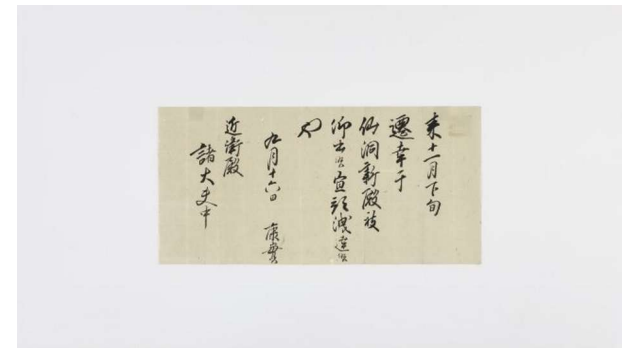 来十一月下旬
遷幸于
仙洞新殿被
仰出候宜預洩達候
也
九月十六日
近衛殿
諸大夫中